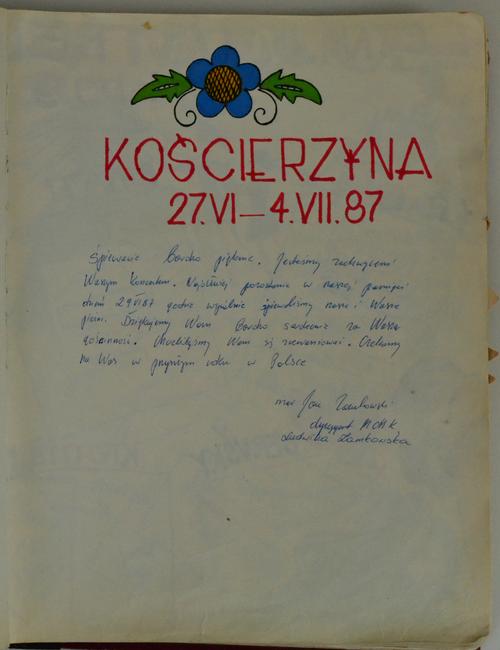 KOŚCIERZYNA
27.VI – 4.VII.87
Śpiewacie Bardzo pięknie. Jesteśmy zachwyceni
Waszym Koncertem. Najdłużej pozostanie w naszej pamięci
dzień 29 VI 87 gdzie wspólnie śpiewaliśmy nasze i Wasze
pieśni. Dziękujemy Wam Bardzo serdecznie za Waszą
gościnność. Chcielibyśmy Wam się zrewanżować. Czekamy
na Was w przyszłym roku w Polsce
mgr Jan
dyrygent
Ludwika Zamkowska